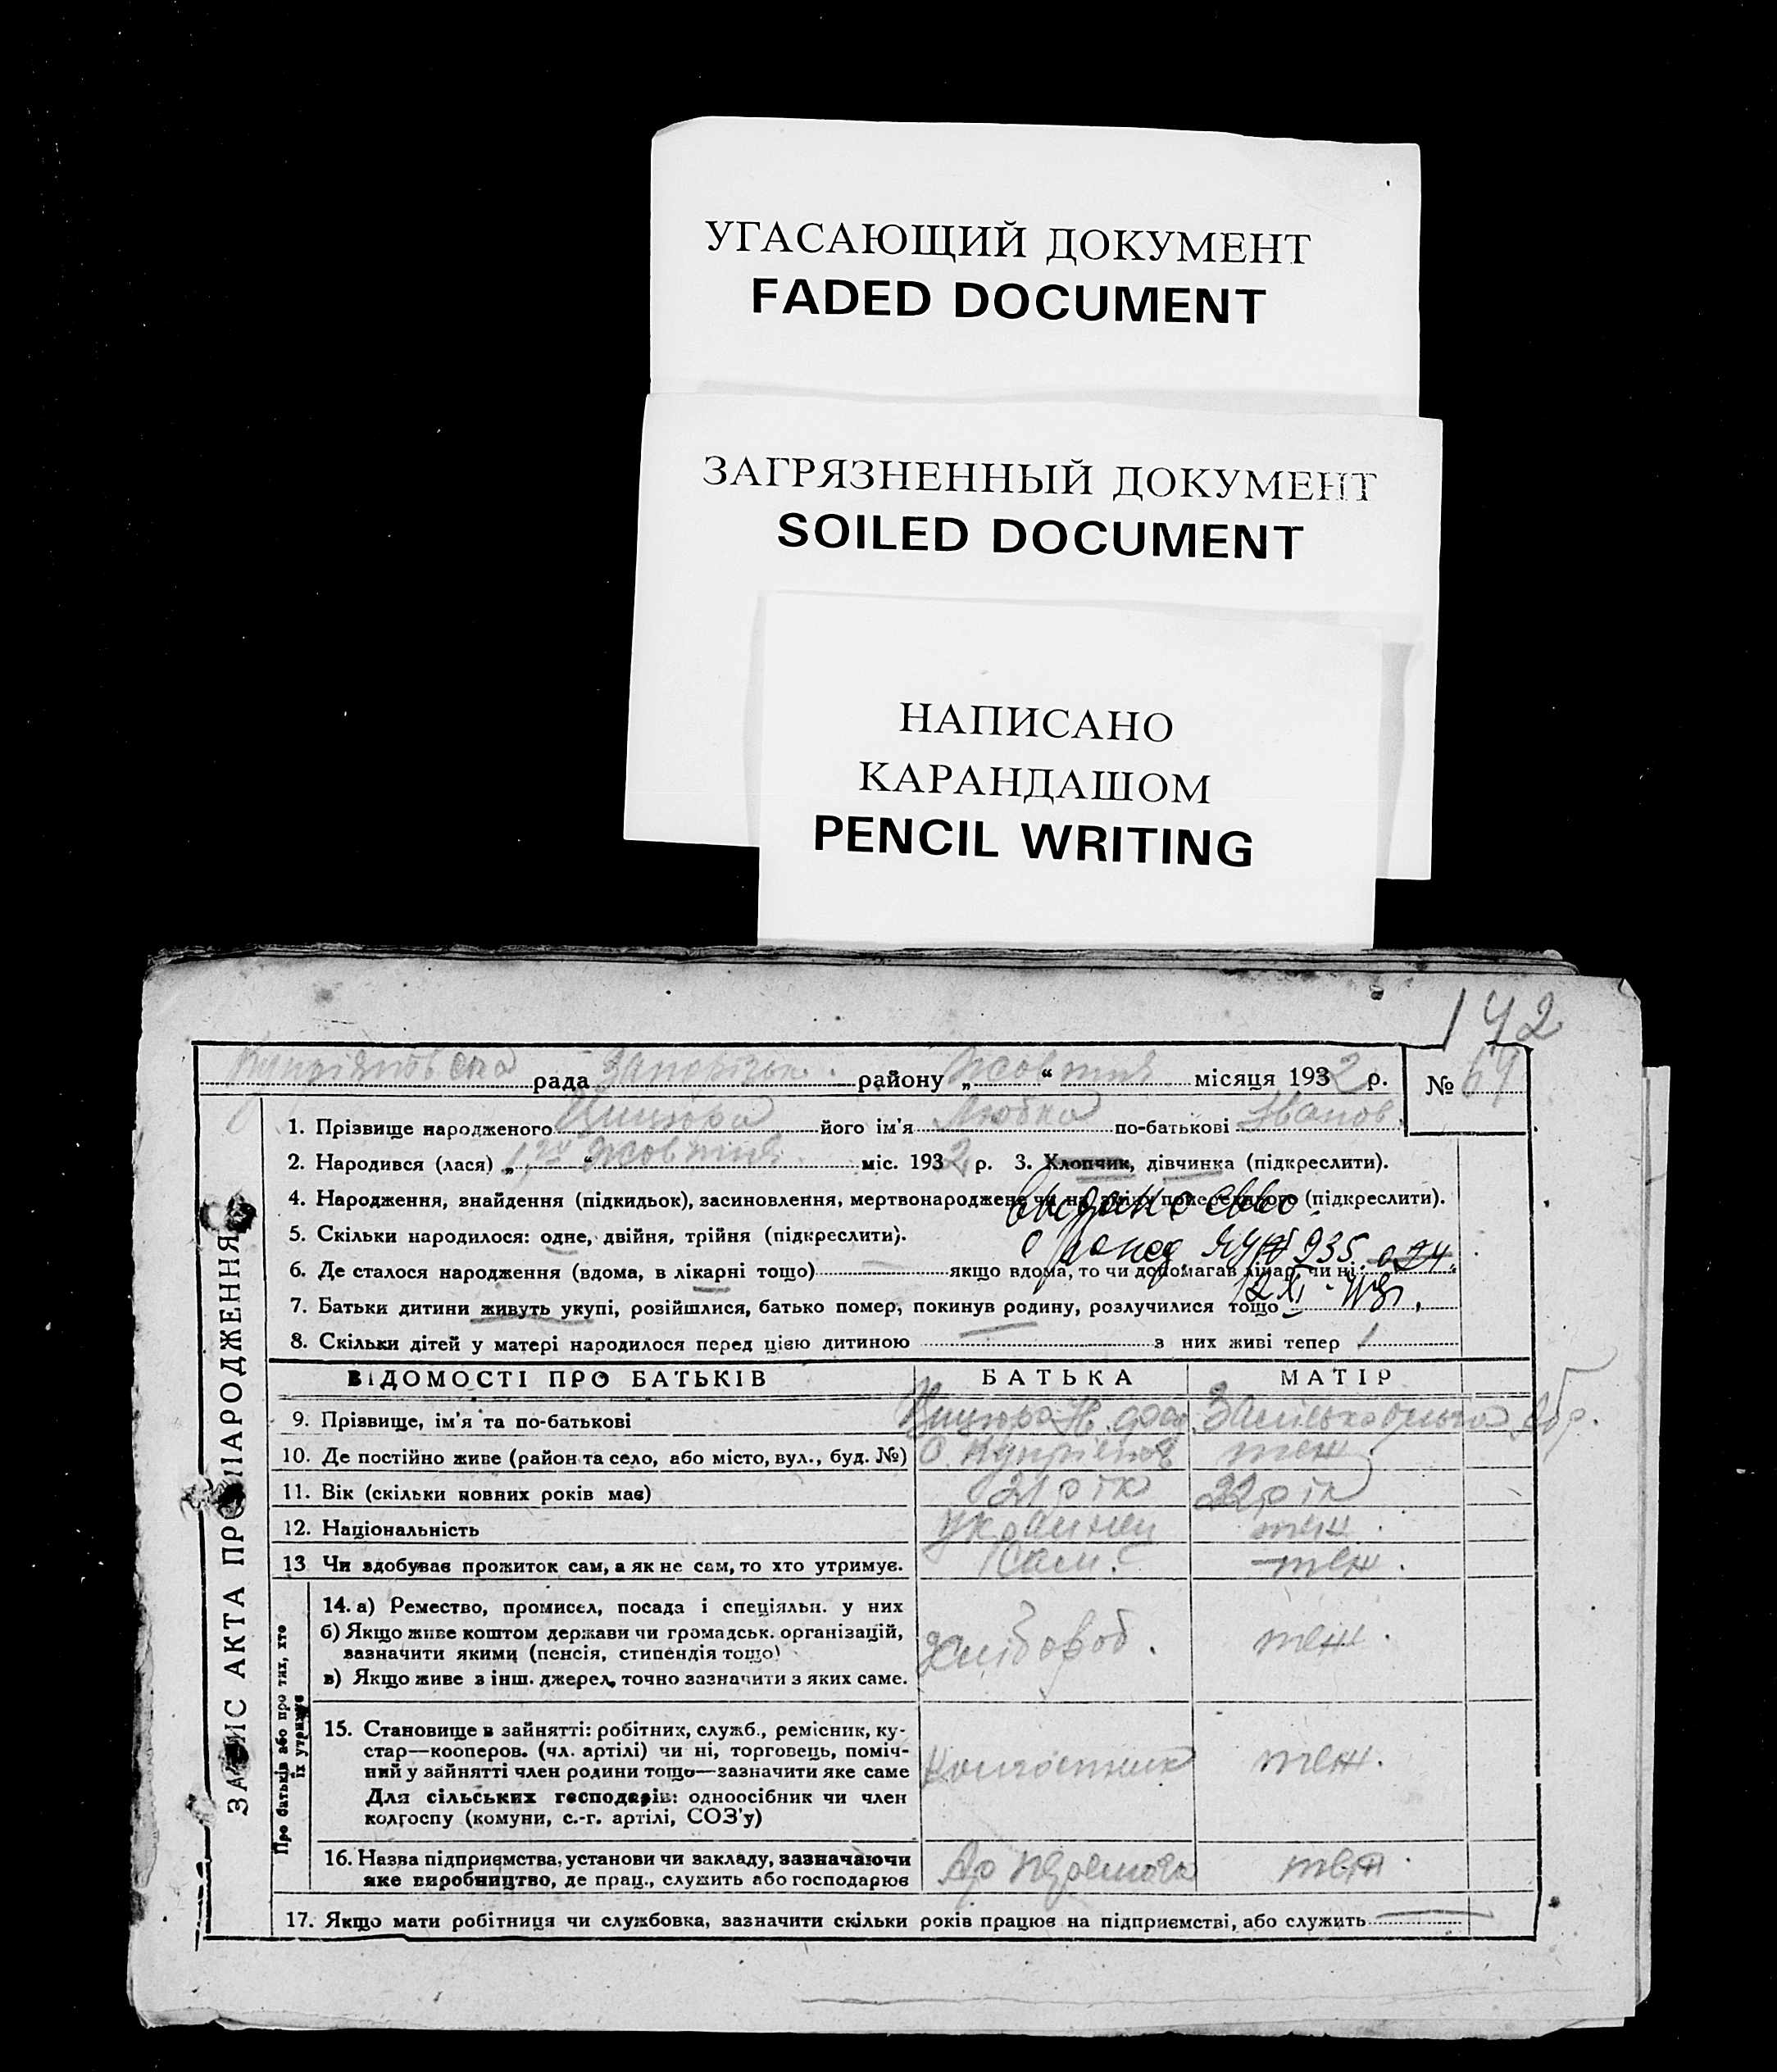 УГАСАЮЩИЙ ДОКУМЕНТ
FADED DOCUMENT
ЗАГРЯЗНЕННЫЙ ДОКУМЕНТ
SOILED DOCUMENT
НАПИСАНО
КАРАНДАШОМ
PENCIL WRITING
142
рада Запорізьк. району „ “ Жовтня місяця 1932 р. № 64
ЗАПИС АКТА ПРО НАРОДЖЕННЯ
1. Прізвище народженого його ім'я Любка по-батькові Іванов
2. Народився (лася) „1“ Жовтня міс. 1932 р. 3. Хлопчик, дівчинка (підкреслити).
4. Народження, знайдення (підкидьок), засиновлення, мертвонароджене чи на зміну попереднього (підкреслити).
5. Скільки народилося: одне, двійня, трійня (підкреслити).
6. Де сталося народження (вдома, в лікарні тощо) якщо вдома, то чи допомагав лікар, чи ні
7. Батьки дитини живуть укупі, розійшлися, батько помер, покинув родину, розлучилися тощо
8. Скільки дітей у матері народилося перед цією дитиною — з них живі тепер 1
ВІДОМОСТІ ПРО БАТЬКІВ БАТЬКА МАТІР
9. Прізвище, ім'я та по-батькові
10. Де постійно живе (район та село, або місто, вул., буд. №) теж
11. Вік (скільки повних років має) 21 рік 22 рік
12. Національність Українец теж.
13. Чи здобував прожиток сам, а як не сам, то хто утримує. Сам. теж.
Про батьків або про тих, хто
їх утримує
14. а) Ремество, промисел, посада і спеціяльн. у них
б) Якщо живе коштом держави чи громадськ. організацій,
зазначити якими (пенсія, стипендія тощо)
в) Якщо живе з інш. джерел, точно зазначити з яких саме.
хлібороб. теж.
15. Становище в зайнятті: робітник, служб., ремісник, ку-
стар—кооперов. (чл. артілі) чи ні, торговець, поміч-
ний у зайнятті член родини тощо—зазначити яке саме
Для сільських господарів: одноосібник чи член
колгоспу (комуни, с.-г. артілі, СОЗ'у)
теж.
16. Назва підприємства, установи чи закладу, зазначаючи
яке виробництво, де прац., служить або господарює
теж.
17. Якщо мати робітниця чи службовка, зазначити скільки років працює на підприємстві, або служить —